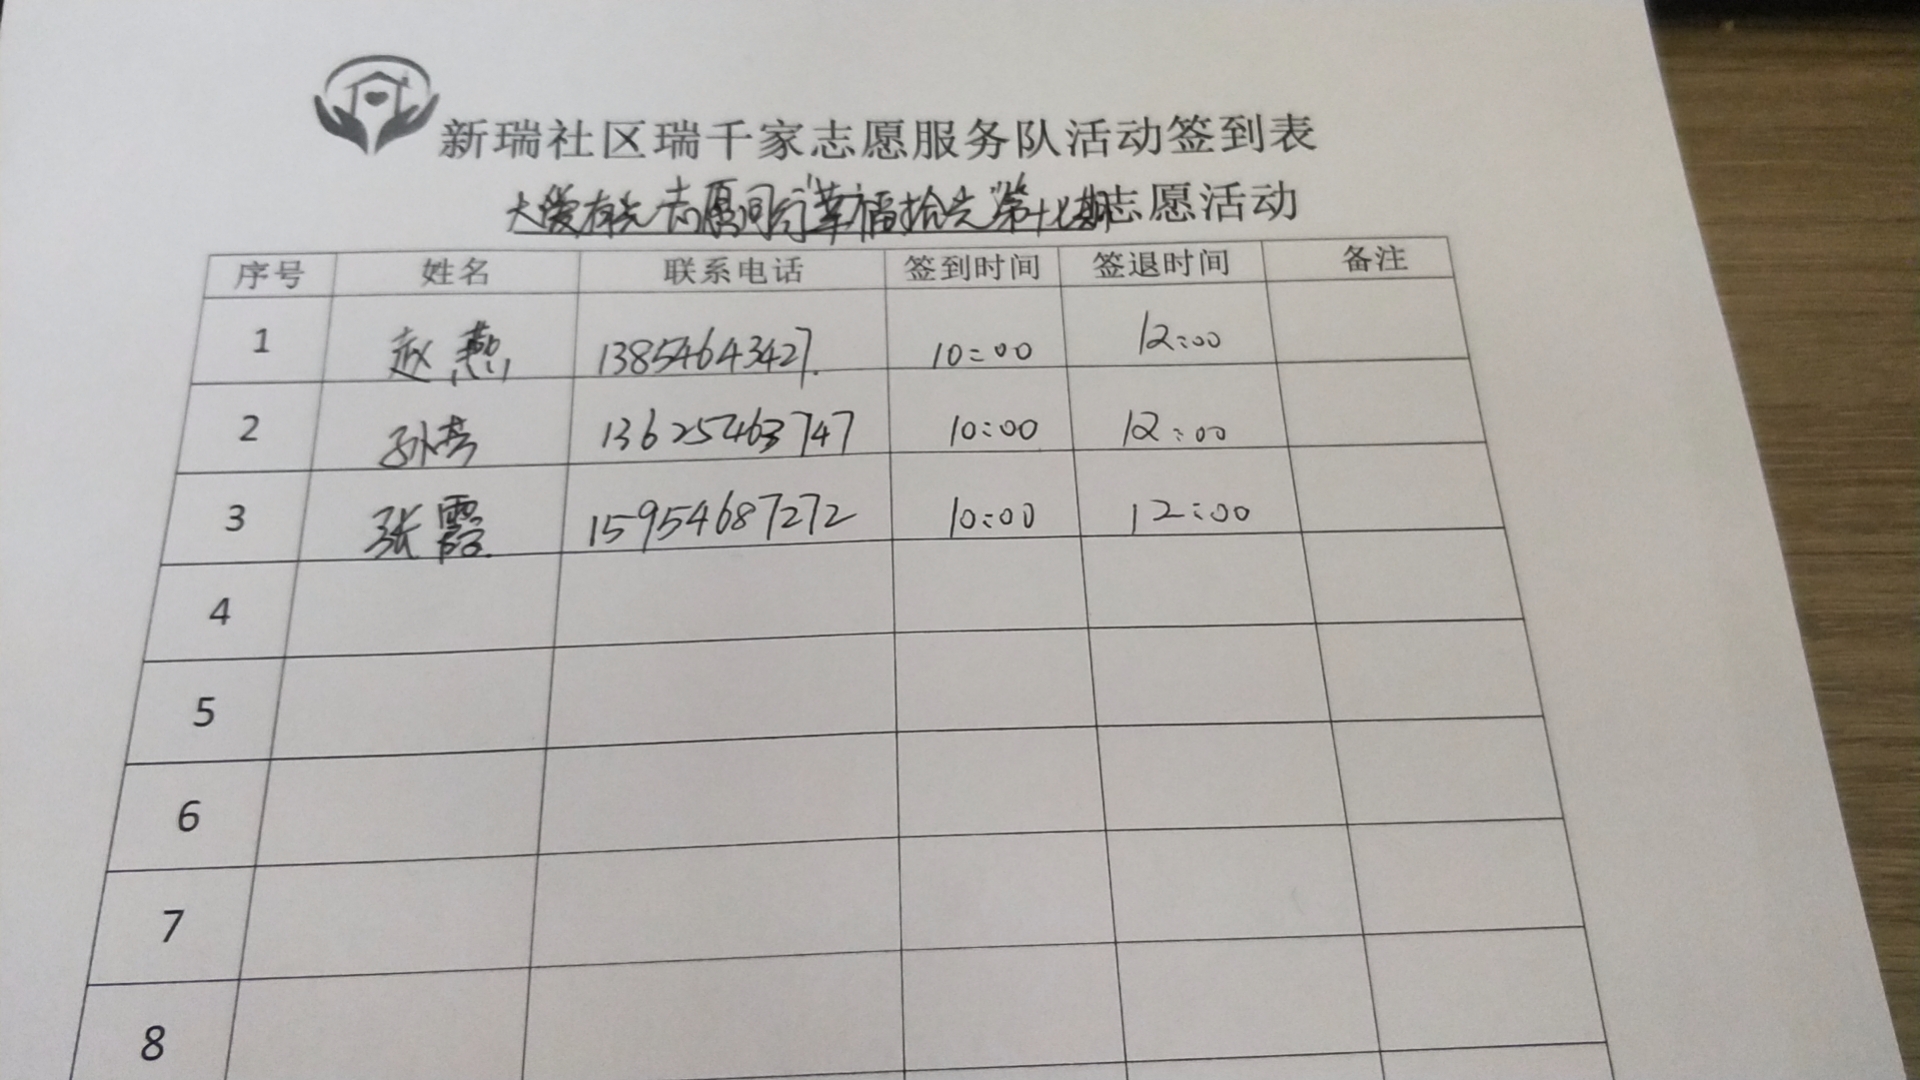 新瑞社区瑞千家志愿服务队活动签到表
大爱有光 志愿同行"幸福拾光"第十七期志愿活动
序号 姓名 联系电话 签到时间 签退时间 备注
1 赵燕 13854643427. 10:00 12:00
2 孙芳 13625463747 10:00 12:00
3 张霞 15954687272 10:00 12:00
4
5
6
7
8